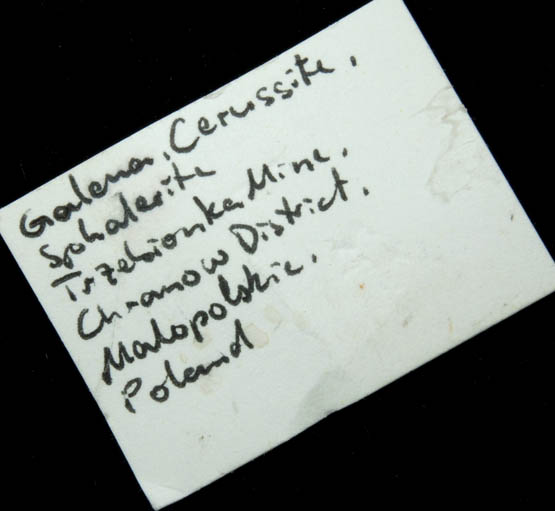 Galena, Cerussite,
Sphalerite
Trzebionka Mine,
Chranow District,
Malopolskie,
Poland